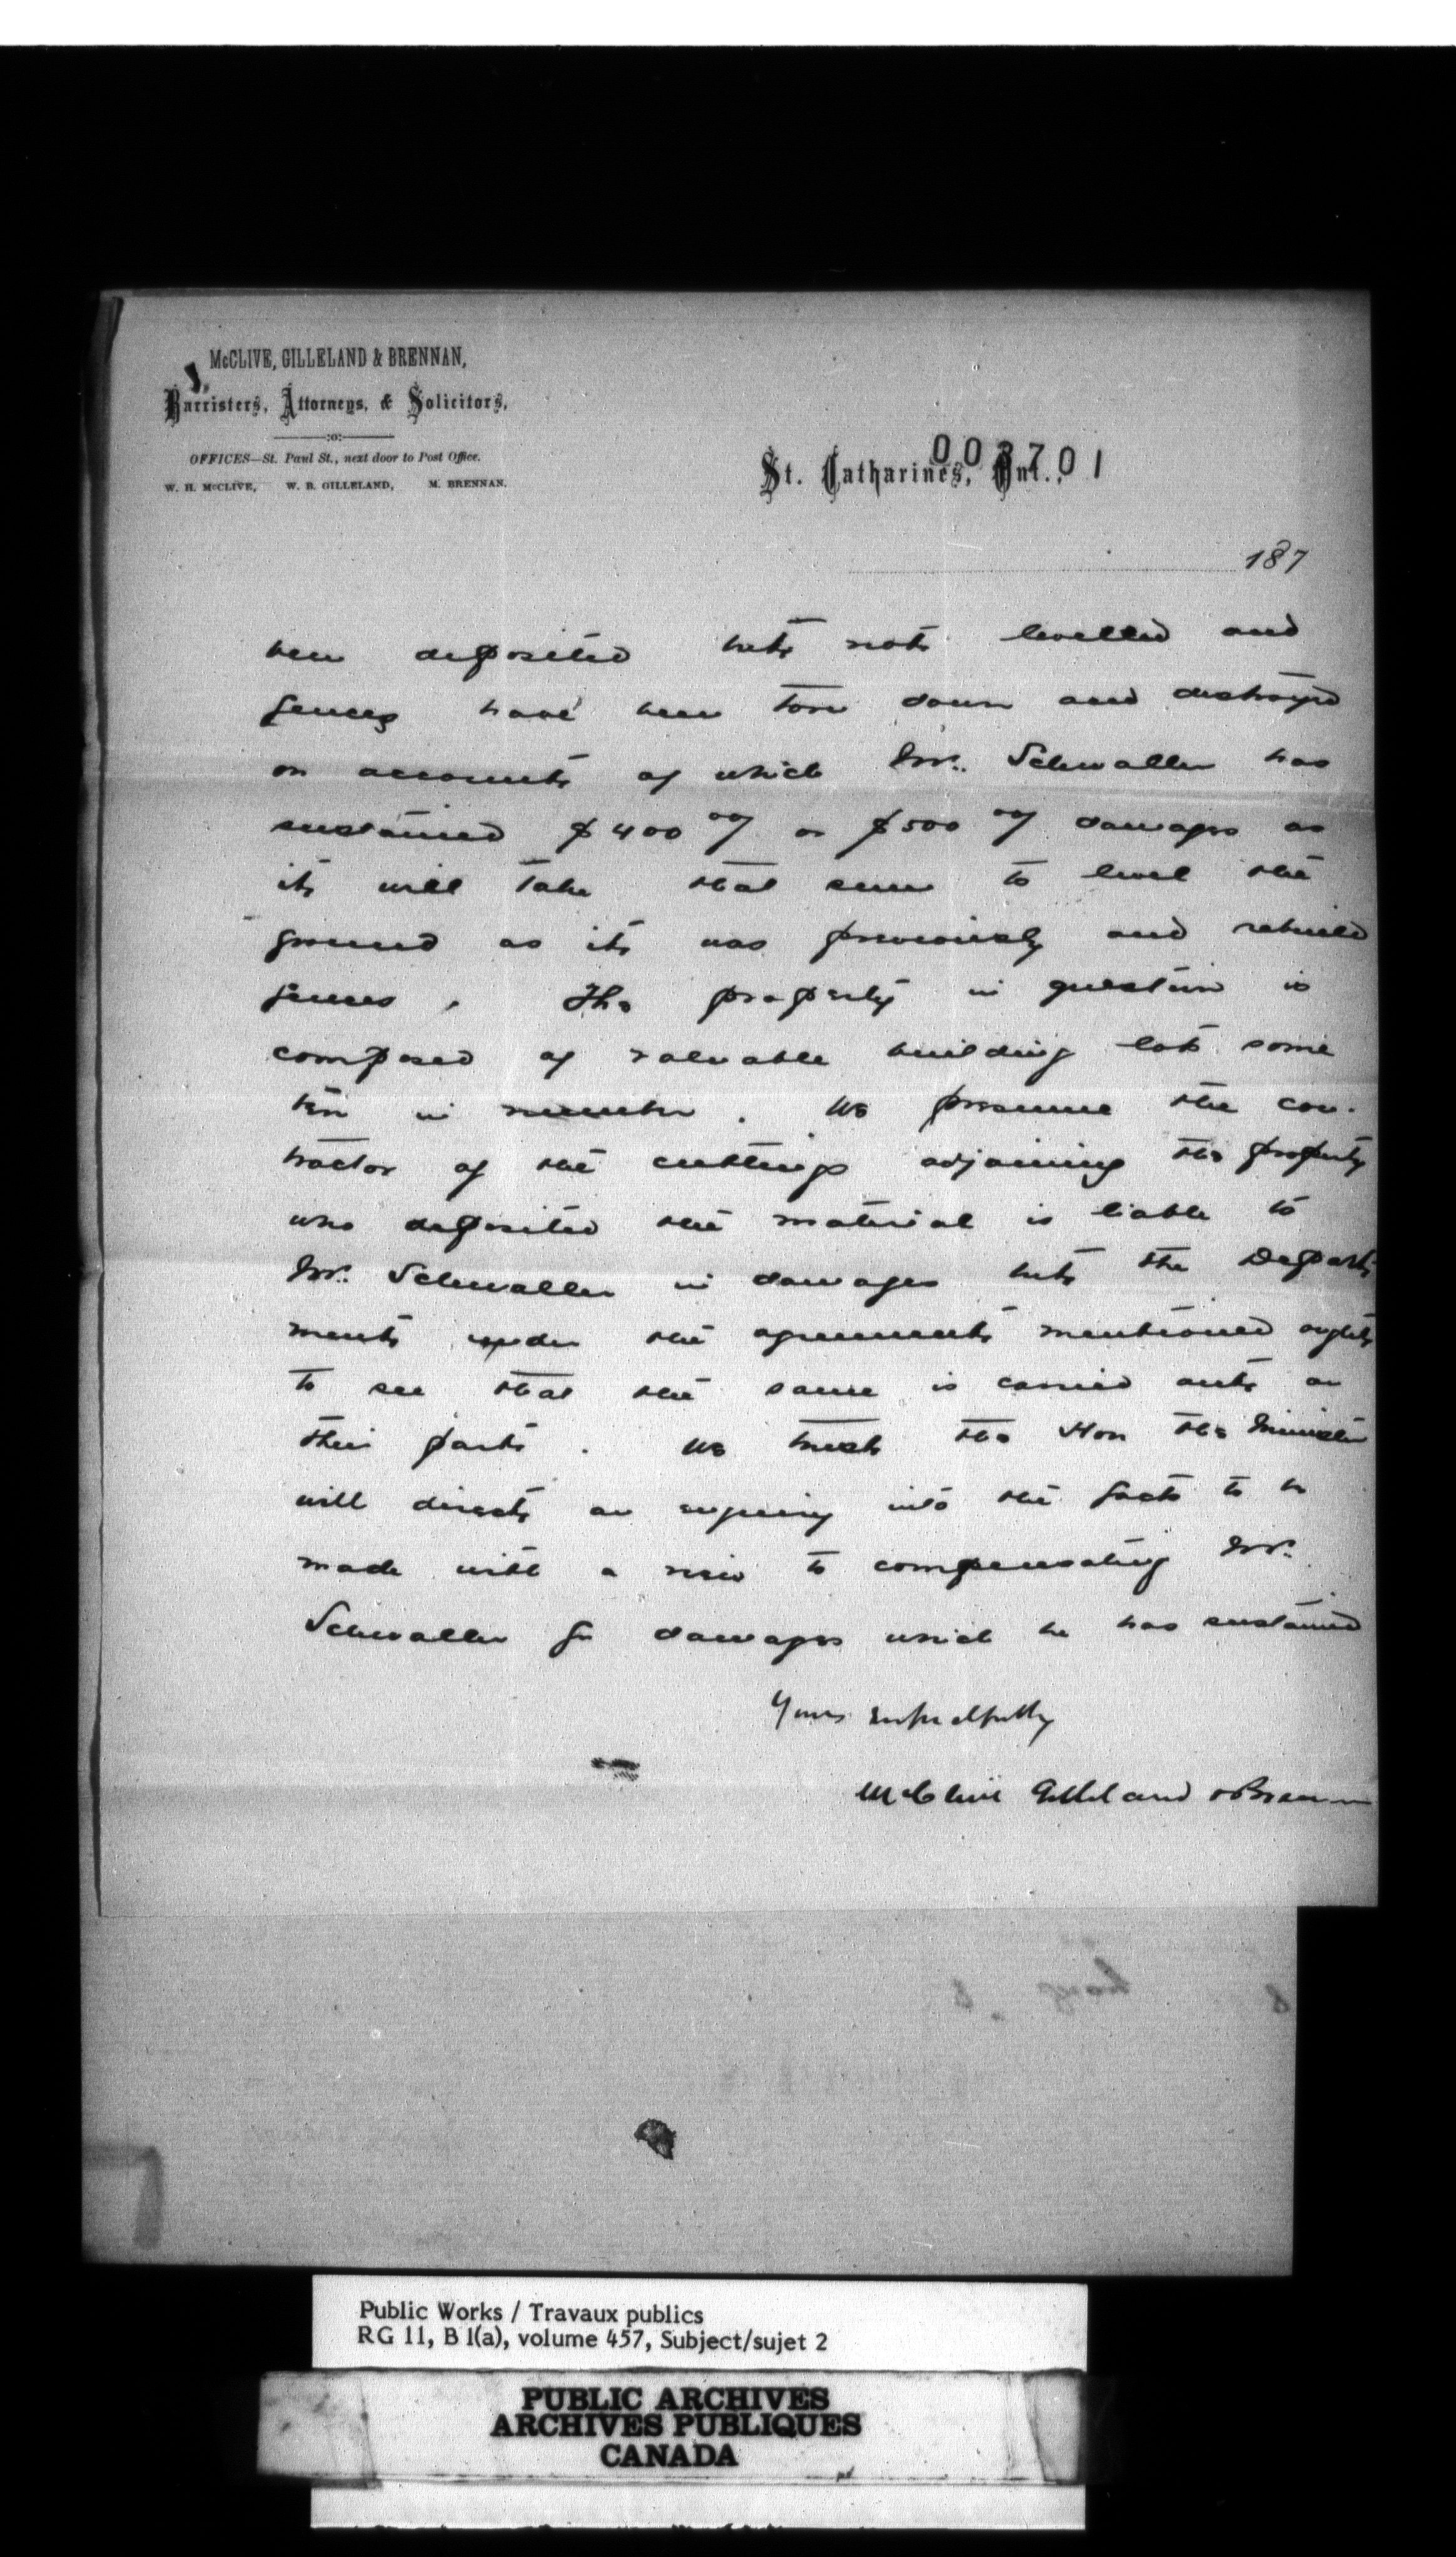 McCLIVE, GILLELAND & BRENNAN,
Barristers, Attorneys, & Solicitors,
:o:
OFFICES—St. Paul St., next door to Post Office.
W. H. McCLIVE, W. B. GILLELAND, M. BRENNAN.
003701
St. Catharines, Ont.,
187
been deposited but not levelled and
fences have been torn down and destroyed
on account of which Mr. Schwaller has
sustained $400 00/ or $500 00/ damages as
it will take that sum to level the
ground as it was previously and rebuild
fences. The property in question is
composed of valuable building lots some
ten in number. We presume the con-
tractor of the cuttings adjoining the property
who deposited the material is liable to
Mr. Schwaller in damages but the Depart-
ment under the agreement mentioned ought
to see that the same is carried out on
their part. We trust the Hon the Minister
will direct an enquiry into the facts to be
made with a view to compensating Mr.
Schwaller for damages which he has sustained
Yours respectfully
McClive Gilleland & Brennan
Public Works / Travaux publics
RG 11, B 1(a), volume 457, Subject/sujet 2
PUBLIC ARCHIVES
ARCHIVES PUBLIQUES
CANADA